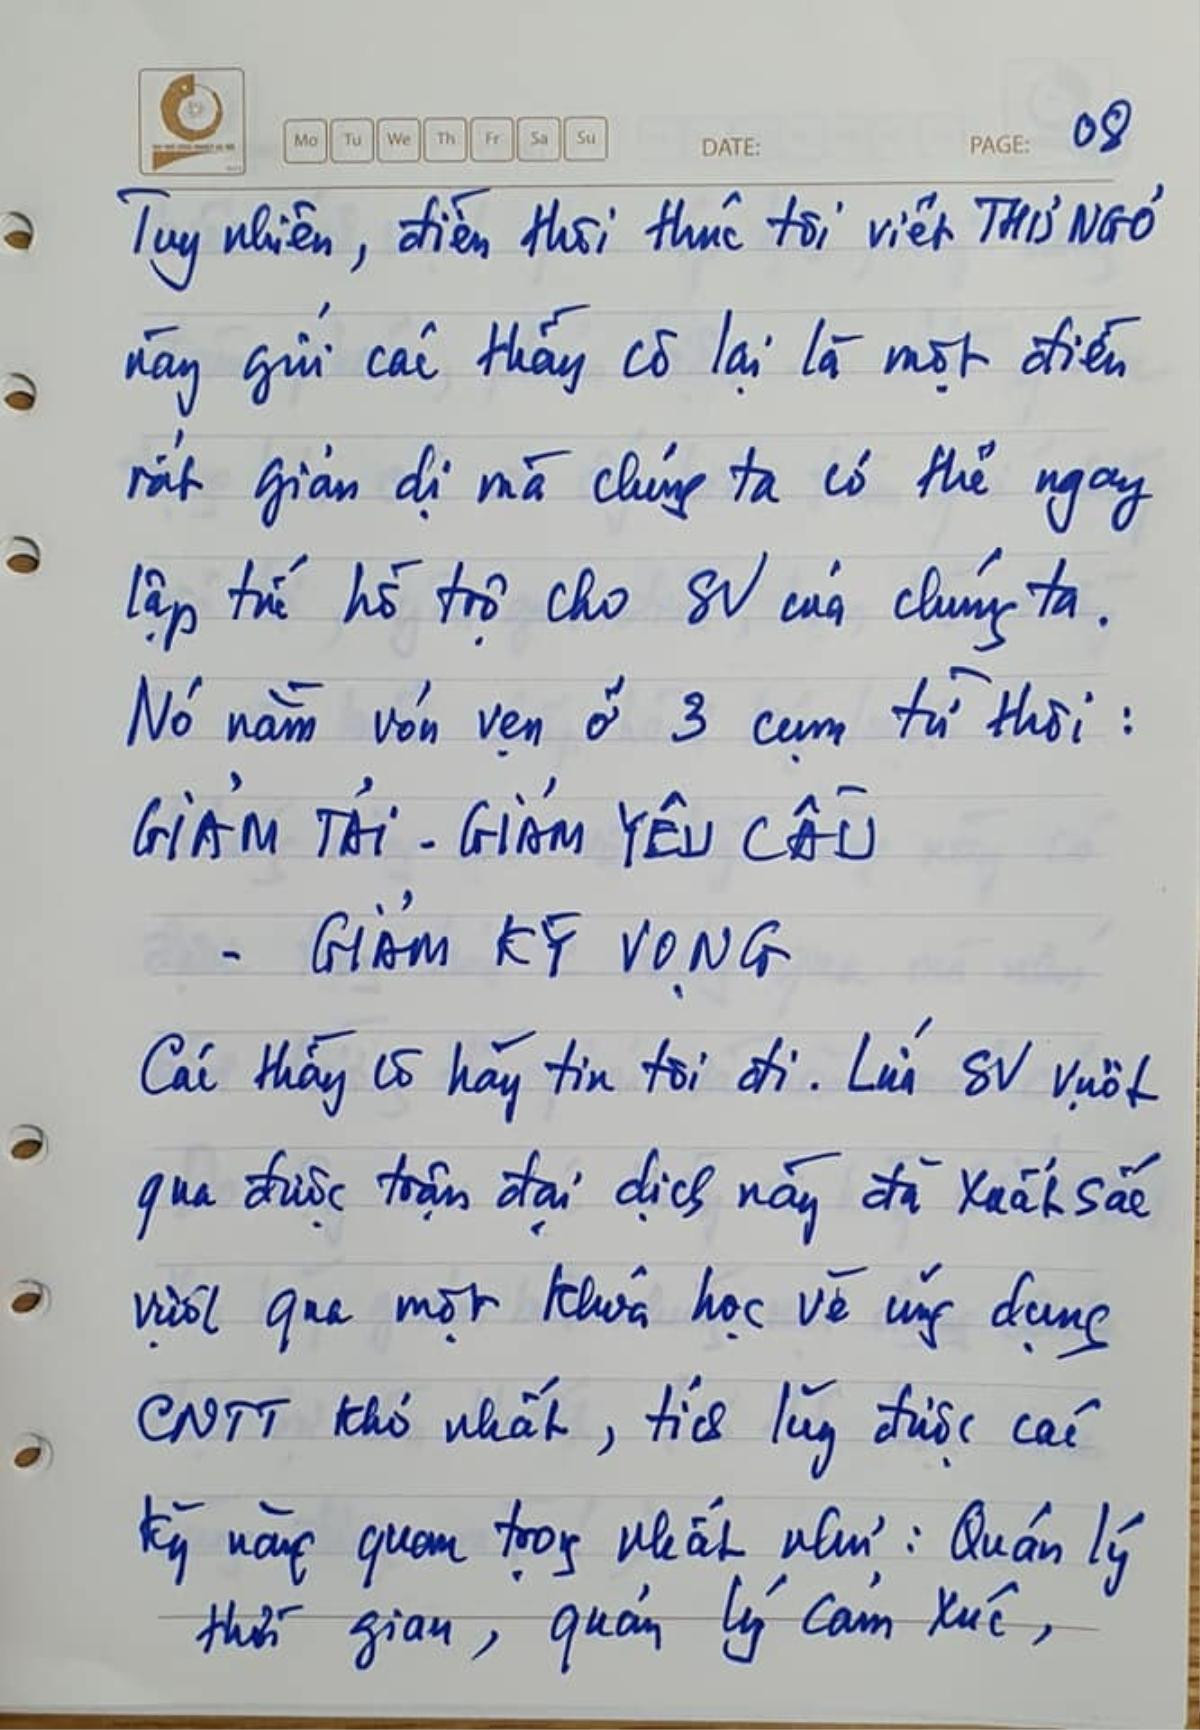 Mo Tu We Th Fr Sa Su DATE: PAGE: 08
Tuy nhiên, điều thôi thúc tôi viết THƯ NGỎ
này gửi các thầy cô lại là một điều
rất giản dị mà chúng ta có thể ngay
lập tức hỗ trợ cho SV của chúng ta.
Nó nằm vỏn vẹn ở 3 cụm từ thôi :
GIẢM TẢI - GIẢM YÊU CẦU
- GIẢM KỲ VỌNG
Các thầy cô hãy tin tôi đi. Lứa SV vượt
qua được trận đại dịch này đã xuất sắc
vượt qua một khóa học về ứng dụng
CNTT khó nhất, tích lũy được các
kỹ năng quan trọng nhất như : Quản lý
thời gian, quản lý cảm xúc,